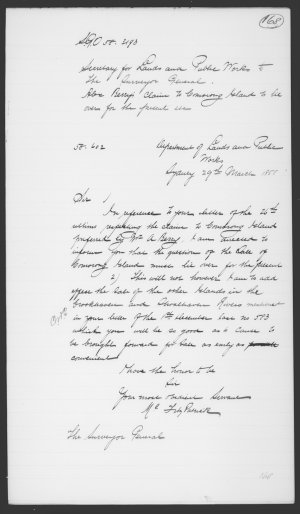 168
SGO 58. 2193
Secretary for Lands and Public Works to
The Surveyor General.
Alex Berry's Claim to Comorong Islands to lie
over for the present
58. 602
Department of Lands and Public
Works
Sydney 29th March 185
Sir
In reference to your letter of the 20th
ultimo respecting the claim to Comorong Island
preferred by Mr A. Berry I am directed to
inform you that the question of the Sale of
Comorong Island must lie over for the present
2/ This will not however I am to add
the Sale of the other Islands in the
Crookhaven and Shoalhaven Rivers mentioned
in your letter of the 1st December last no 573
which you will be so good as to cause to
be brought forward for Sale as early as
convenient
I have the honor to be
Sir
Your most obedient Servant
Ml Fitzpatrick
The Surveyor General
168